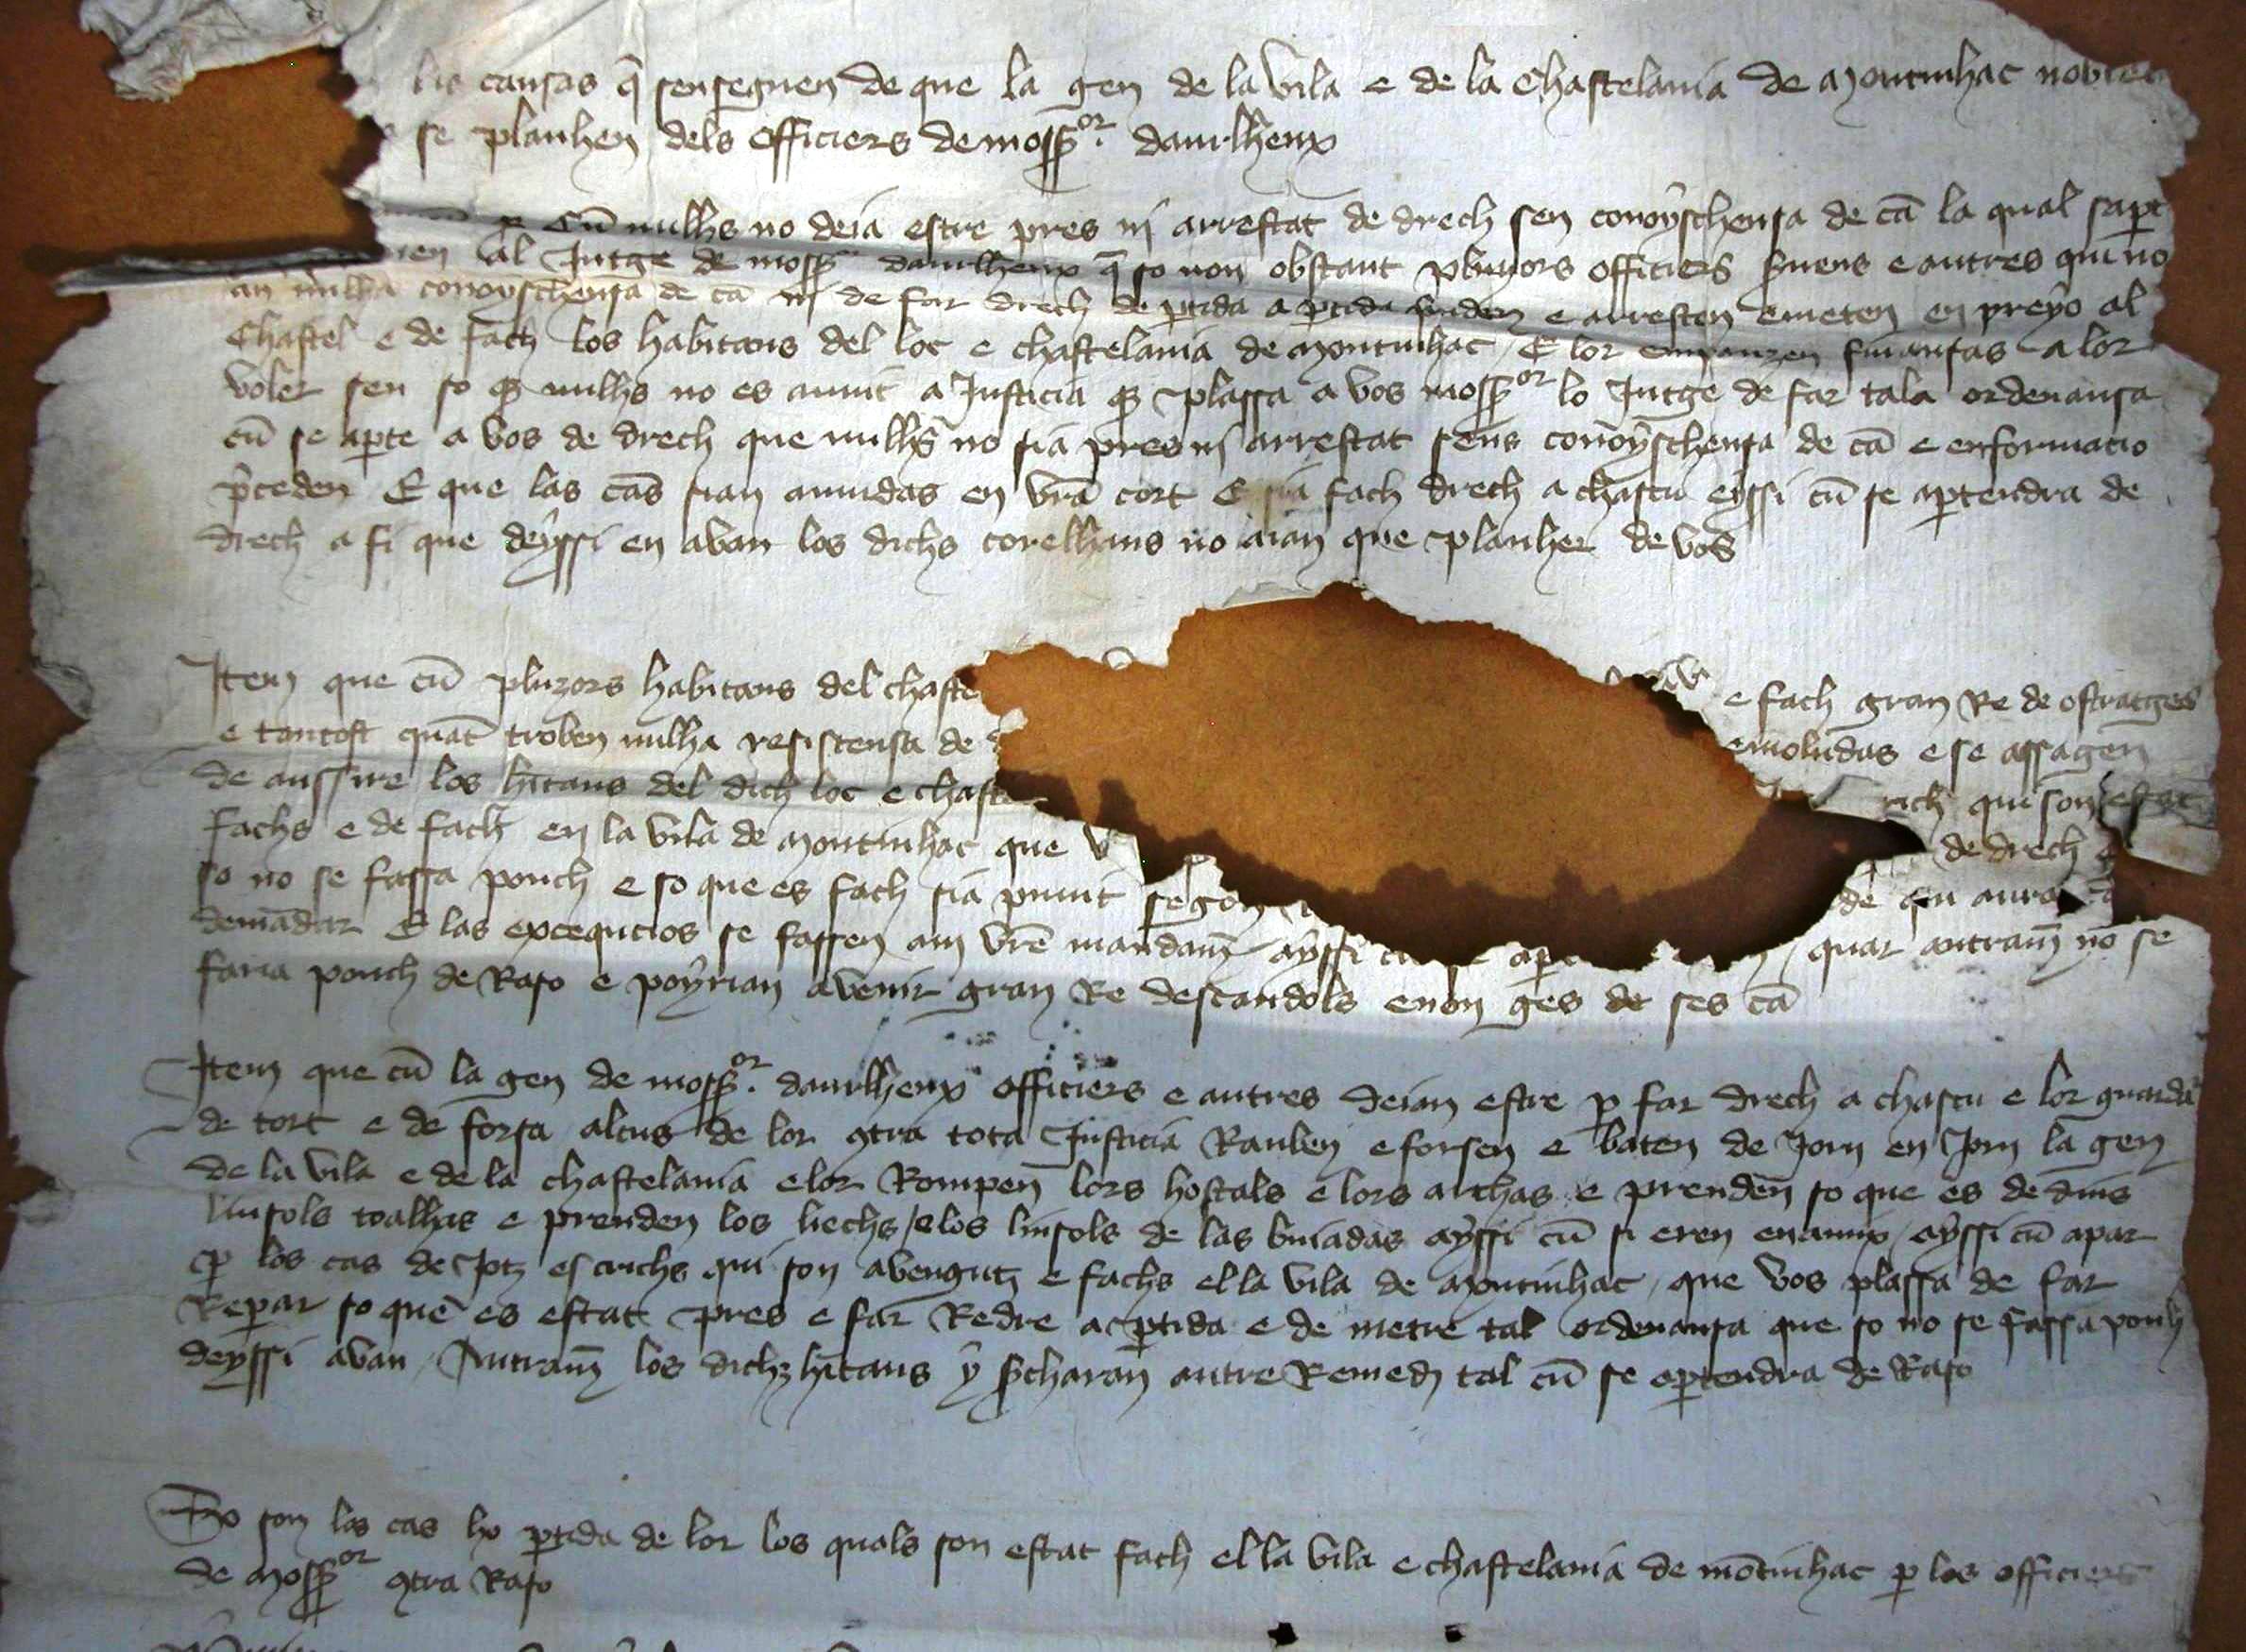 las causas q̄ senseguen de que la gen de la vila e de la Chastelania de Montinhac
se planhen dels officiers de moss̄or daurlhenx
p̱ cū nulhs no deia estre pres ni arrestat de drech sen conoyschensa de cā la qual
al Jutge de moss̄ daurlhenx q̄ so non obstant pluzors officiers s̄vens e autres qui no
an nulha conoyschensa de cā ni de far drech de p̱tida a p̱tida e arresten e meten en preyo al
Chastel e de fach los habitans del loc e chastelania de Montinhac E lor finansas a lor
voler sen so q̱ nulhs no es auuit a Justicia q̱ plassa a vos moss̄or lo Jutge de far tala ordenansa
cū se ap̱te a vos de drech que nulhs no sia pres ni arrestat sens conoyschensa de cā e enformacio
p̄ceden E que las cās sian auuidas en vr̄a cort E sia fach drech a chascu eyssi cū se ap̱tendra de
drech a fi que deyssi en avan los dichs no aian que planher de vos
Item que cū pluzors habitans del chaste e fach gran Re de ostratges
e tantost quāt troben nulha resistensa de emoludas e se assagen
de aussire los hītans del dich loc e chaste rich que son estat
fachs e de fach en la vila de Montinhac que de drech
so no se fassa ponch e so que es fach sia punit segon de qu aura
demādar E las excequcios se fassen am vr̄e mandam̄ ayssi quar autram̄ no se
faria ponch de Raso e poyrian avenir gran Re descandols e non ges de ses cā
Item que cū la gen de moss̄or daurlhenx officiers e autres deian estre p̱ far drech a chascu e lor guardar
de tort e de forsa alcus de lor ꝯtra tota Justicia Rauben e forsen e baten de Jorn en Jorn la gen
de la vila e de la chastelania e lor Rompen lors hostals e lors archas e prenden so que es de dins
linsols toalhas e prenden los liechs / e los linsols de las buiadas ayssi cū si eren enamix / ayssi cū apar
p̱ los cas de Jotz escrichs qui son avengutz e fachs el la vila de Montinhac / que vos plassa de far
Rep̱ar so que es estat pres e far Redre a p̱tida e de metre tal ordenansa que so no se fassa ponch
deyssi avan / Autram̄ los dichz hītans y s̄charan autre Remedi tal cū se ap̱tendra de Raso
So son los cas ho p̱tida de lor los quals son estat fach el la vila e chastelania de mōtinhac p̱ los officiers
de moss̄or ꝯtra Raso